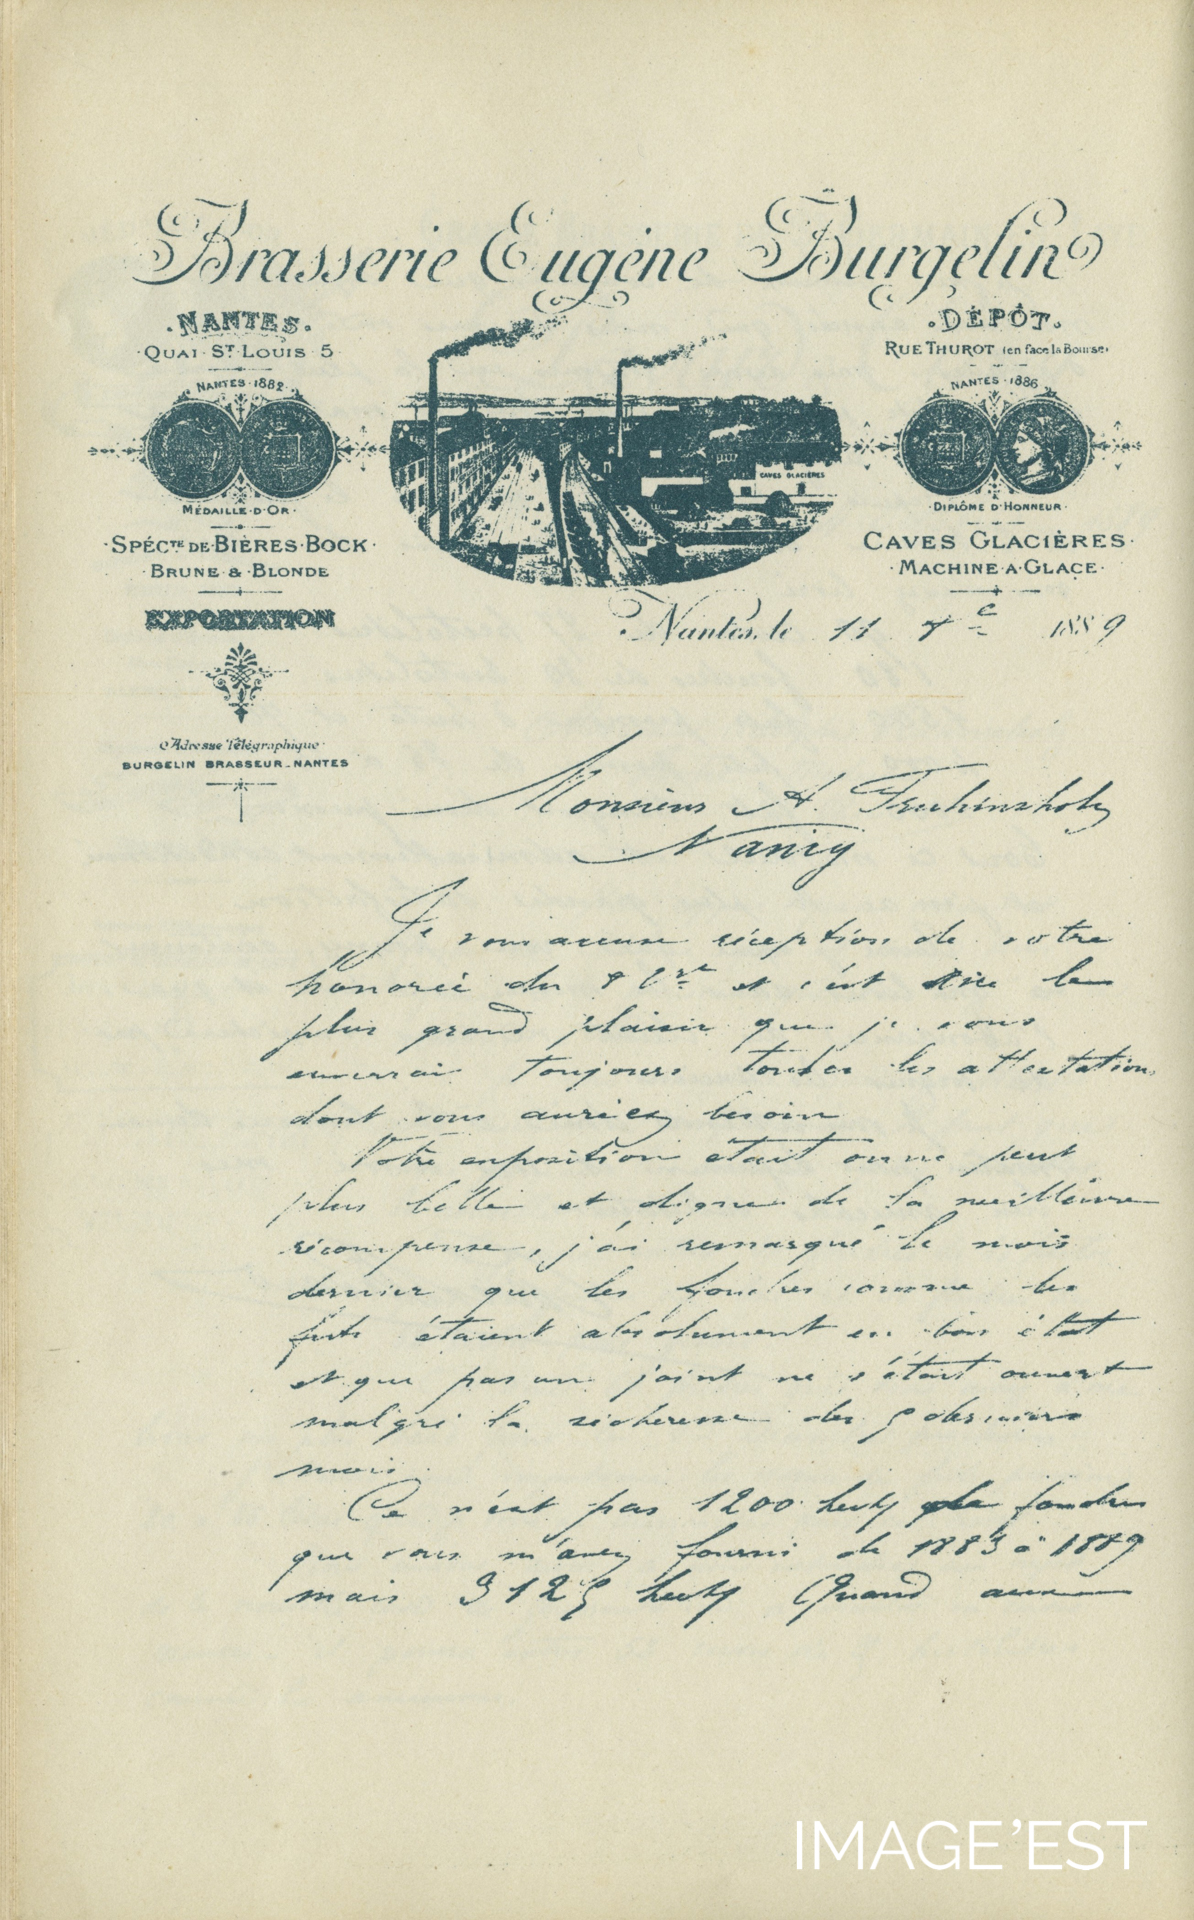 Brasserie Eugène Burgelin
·NANTES·
·QUAI·ST·LOUIS·5
NANTES·1882
MÉDAILLE·D'OR·
·SPÉCTÉ DE·BIÈRES·BOCK·
·BRUNE·&·BLONDE
EXPORTATION
Adresse Télégraphique·
BURGELIN BRASSEUR_NANTES
CAVES GLACIÈRES
·DÉPÔT·
RUE THUROT (en face la Bourse)
NANTES·1886
·DIPLÔME D'HONNEUR·
CAVES GLACIÈRES·
·MACHINE·A·GLACE·
Nantes, le 11 1889
Monsieur A. Fruhinsholz
Nancy
Je vous accuse réception de votre
honorée du 8 et c'est avec le
plus grand plaisir que je vous
enverrai toujours toutes les attestations
dont vous auriez besoin
Votre exposition était on ne peut
plus belle et digne de la meilleure
récompense, j'ai remarqué le mois
dernier que les foudres comme les
futs étaient absolument en bon état
et que pas un joint ne s'était ouvert
malgré la sécheresse des 5 derniers
mois.
Ce n'est pas 1200 hectz de foudres
que vous m'avez fourni de 1883 à 1889
mais 3125 hectz Quand aux
IMAGE'EST